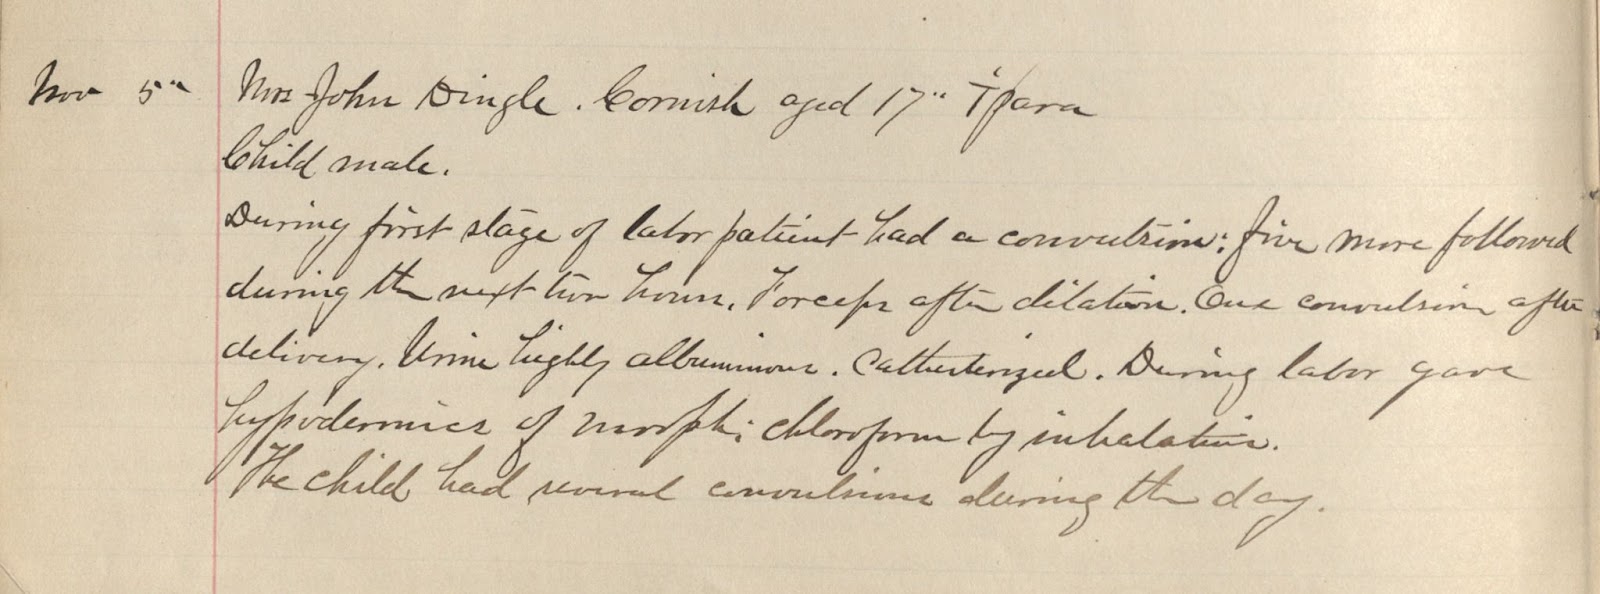 Nov 5th Mrs John Dingle. Cornish aged 17" I para
Child male.
During first stage of labor patient had a convulsion: five more followed
during the next two hours. Forceps after dilation. One convulsion after
delivery. Urine highly albuminous. Catheterized. During labor gave
hypodermics of morph; chloroform by inhalation.
The child had several convulsions during the day.